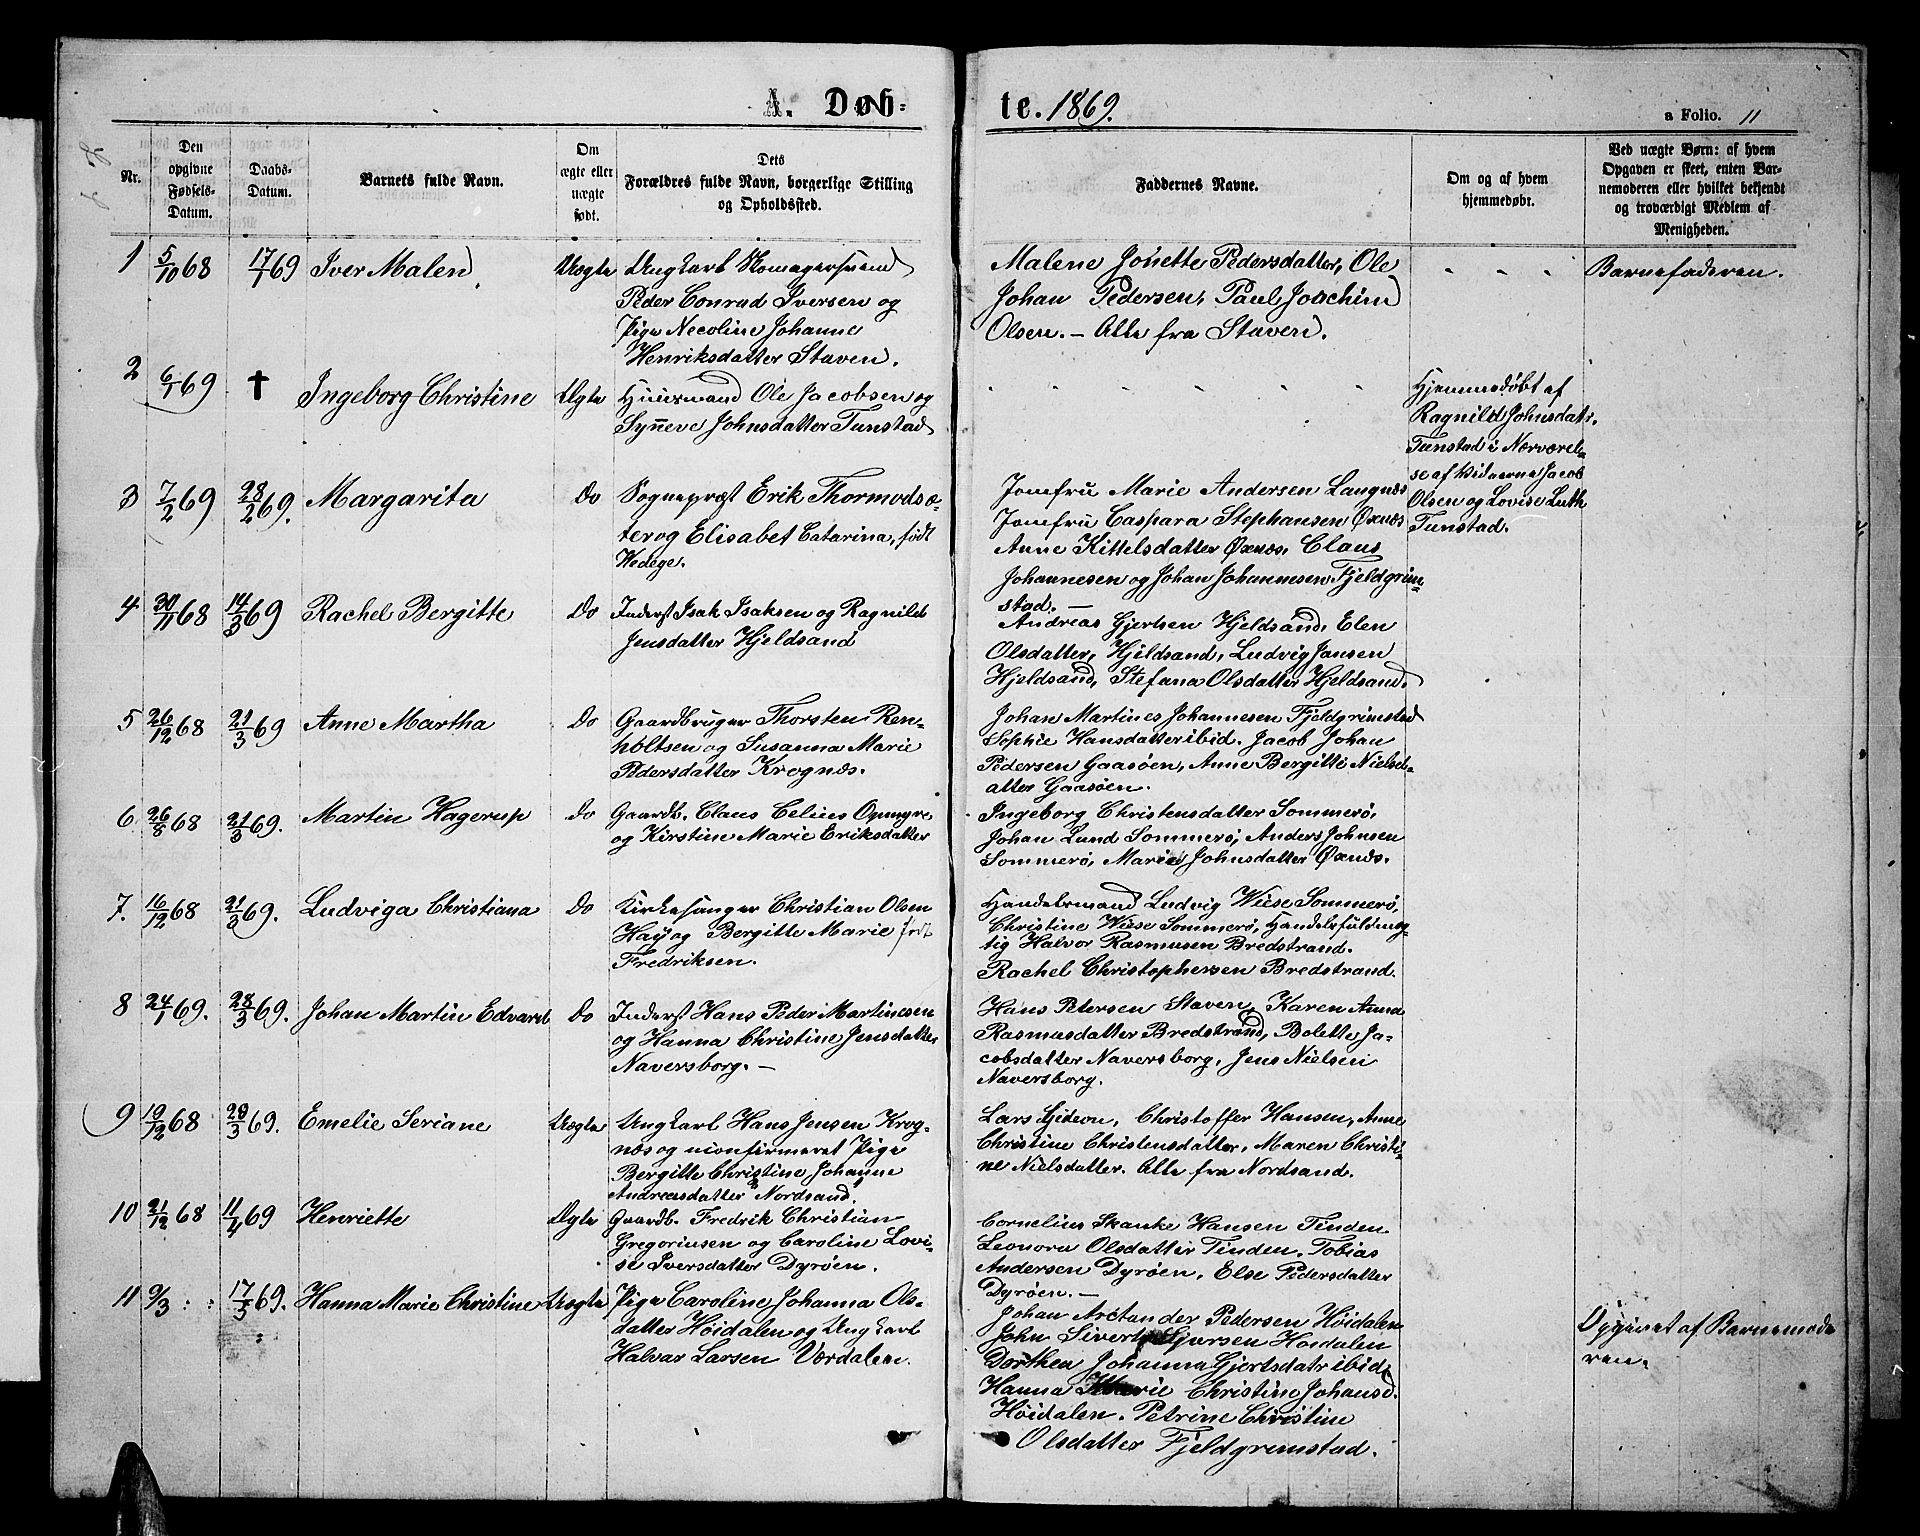 A. Døb-
te. 1869.
a Folio. 11
Nr.
Den opgivne Fødsels-Datum.
Daabs-Datum.
Barnets fulde Navn.
Om ægte eller uægte født.
Dets Forældres fulde Navn, borgerlige Stilling og Opholdssted.
Faddernes Navne.
Om og af hvem hjemmedøbt.
Ved uægte Børn: af hvem Opgaven er skeet, enten Barnemoderen eller hvilket bekjendt og troværdigt Medlem af Menigheden.
1 5/10 68 17/1 69 Iver Malen Uægte Ungkarl Komagersvend
Peder Conrad Iversen og
Pige Necoline Johanne
Henriksdatter Staven.
Malene Jonette Pedersdatter, Ole
Johan Pedersen, Paul Joachim
Olsen. – Alle fra Staven.
Barnefaderen.
2 6/1 69 † Ingeborg Christine Ægte Huusmand Ole Jacobsen og
Synneve Johnsdatter Tunstad
Hjemmedøbt af
Ragnild Johnsdatr.
Tunstad i Nærværel-
se af Vidnerne Jacob
Olsen og Lovise Luth
Tunstad.
3 7/2 69 28/2 69. Margarita do Sognepræst Erik Thormodsæ-
ter og Elisabet Catarina, født
Wedege.
Jomfru Marie Andersen Langnæs
Jomfru Caspara Stephansen Øxnæs
Anne Kittelsdatter Øxnæs, Claus
Johannesen og Johan Johannesen Fjeldgrim-
stad. –
4 30/11 68 14/3 69 Rachel Bergitte do Inderst Isak Isaksen og Ragnild
Jensdatter Hjeldsand
Andreas Gjertsen Hjeldsand, Elen
Olsdatter, Hjeldsand, Ludvig Jansen
Hjeldsand, Stefana Olsdatter Hjeldsand.
5 26/12 68 21/3 69 Anne Martha do Gaardbruger Thorsten Ren-
holtsen og Susanna Marie
Pedersdatter Krognæs.
Johan Martines Johannesen Fjeldgrimstad
Sophie Hansdatter ibid. Jacob Johan
Pedersen Gaasøen, Anne Bergitte Nielsd-
atter Gaasøen.
6 26/8 68 21/3 69. Martin Hagerup do Gaardb. Claus Celius Opmyre
og Kirstine Marie Eriksdatter
Ingeborg Christensdatter Sommerø,
Johan Lund Sommerø, Anders Johnsen
Sommerø, Marie Johnsdatter Øxnæs.
7. 16/12 68 21/3 69. Ludviga Christiana do Kirkesanger Christian Olsen
Hay og Bergitte Marie født
Fredriksen.
Handelsmand Ludvig Wiese Sommerø,
Christine Wiese Sommerø, Handelsfuldmæg-
tig Halvor Rasmusen Bredstrand.
Rachel Christophersen Bredstrand.
8 24/1 69. 28/3 69. Johan Martin Edvard do Inderst Hans Peder Martinesen
og Hanna Christine Jensdatter
Naversborg. –
Hans Petersen Staven, Karen Anna
Rasmusdatter Bredstrand, Bolette Ja-
cobsdatter Naversborg, Jens Nielsen
Naversborg.
9 19/12 68 28/3 69. Emelie Seriane Uægte Ungkarl Hans Jensen Krog-
næs og uconfirmeret Pige
Bergitte Christine Johanne
Andreasdatter Nordsand.
Lars Gideon, Christoffer Hansen, Anne
Christine Christensdatter, Maren Christi-
ne Nielsdatter. Alle fra Nordsand.
10 21/12 68 11/4 69 Henriette Ægte Gaardb. Fredrik Christian
Gregoriusen og Caroline Lovi-
se Iversdatter Dyrøen.
Cornelius Skanke Hansen Tinden
Leonora Olsdatter Tinden. Tobias
Andersen Dyrøen, Else Pedersdatter
Dyrøen. –
11 9/3 17/5 69. Hanna Marie Christine Uægte Pige Caroline Johanna Ols-
datter Høidalen og Ungkarl
Halvar Larsen Værdalen.
Johan Arctander Pedersen Høidalen
John Sivert Sjursen Høidalen
Dorthea Johanna Gjertsdatr ibid,
Hanna Marie Christine Johansd.
Høidalen. Petrine Christine
Olsdatter Fjeldgrimstad.
Opgivet af Barnemode
ren.